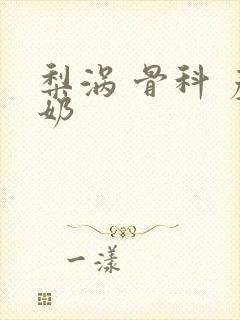 梨涡 骨科
奶
一漾